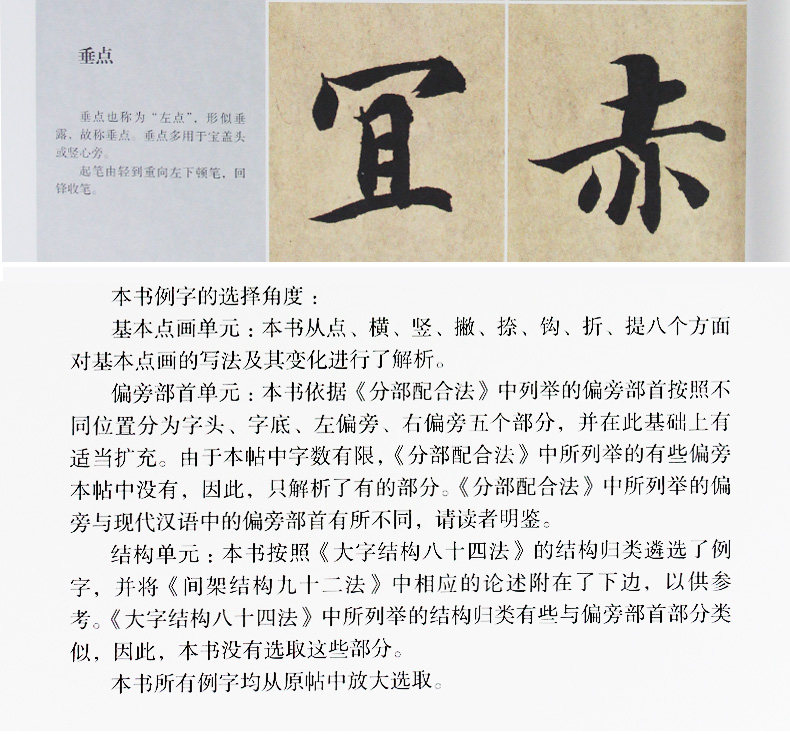 垂点
垂点也称为“左点”，形似垂
露，故称垂点。垂点多用于宝盖头
或竖心旁。
起笔由轻到重向左下顿笔，回
锋收笔。
冝 赤
本书例字的选择角度：
基本点画单元：本书从点、横、竖、撇、捺、钩、折、提八个方面
对基本点画的写法及其变化进行了解析。
偏旁部首单元：本书依据《分部配合法》中列举的偏旁部首按照不
同位置分为字头、字底、左偏旁、右偏旁五个部分，并在此基础上有
适当扩充。由于本帖中字数有限，《分部配合法》中所列举的有些偏旁
本帖中没有，因此，只解析了有的部分。《分部配合法》中所列举的偏
旁与现代汉语中的偏旁部首有所不同，请读者明鉴。
结构单元：本书按照《大字结构八十四法》的结构归类遴选了例
字，并将《间架结构九十二法》中相应的论述附在了下边，以供参
考。《大字结构八十四法》中所列举的结构归类有些与偏旁部首部分类
似，因此，本书没有选取这些部分。
本书所有例字均从原帖中放大选取。